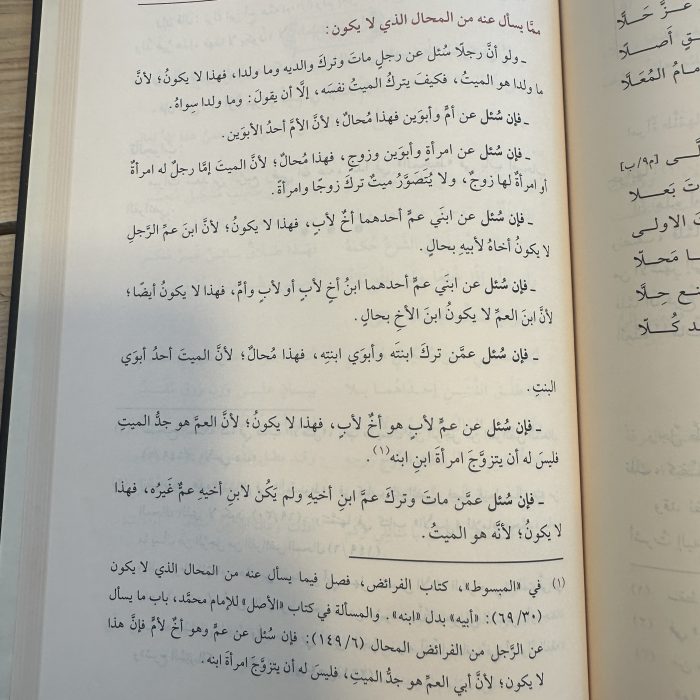 ممَّا يسأل عنه من المحال الذي لا يكون:
ـ ولو أنَّ رجلًا سُئل عن رجلٍ ماتَ وتركَ والديه وما ولدا، فهذا لا يكونُ؛ لأنَّ
ما ولدا هو الميتُ، فكيفَ يتركُ الميتُ نفسَه، إلَّا أن يقولَ: وما ولدا سِواهُ.
ـ فإن سُئل عن أمٍّ وأبوَين فهذا مُحالٌ؛ لأنَّ الأمَّ أحدُ الأبوَين.
ـ فإن سُئل عن امرأةٍ وأبوَين وزوجٍ، فهذا مُحالٌ؛ لأنَّ الميتَ إمَّا رجلٌ له امرأةٌ
أو امرأةٌ لها زوجٌ، ولا يُتَصَوَّرُ ميتٌ تركَ زوجًا وامرأةً.
ـ فإن سُئل عن ابنَي عمٍّ أحدهما أخٌ لأبٍ، فهذا لا يكونُ؛ لأنَّ ابنَ عمِّ الرَّجلِ
لا يكونُ أخاهُ لأبيهِ بحالٍ.
ـ فإن سُئل عن ابنَي عمٍّ أحدهما ابنُ أخٍ لأبٍ أو لأبٍ وأمٍّ، فهذا لا يكونُ أيضًا؛
لأنَّ ابنَ العمِّ لا يكونُ ابنَ الأخِ بحالٍ.
ـ فإن سُئل عمَّن تركَ ابنتَه وأبوَي ابنتِه، فهذا مُحالٌ؛ لأنَّ الميتَ أحدُ أبوَي
البنتِ.
ـ فإن سُئل عن عمٍّ لأبٍ هو أخٌ لأبٍ، فهذا لا يكونُ؛ لأنَّ العمَّ هو جدُّ الميتِ
فليسَ له أن يتزوَّجَ امرأةَ ابنِ ابنه(١).
ـ فإن سُئل عمَّن ماتَ وتركَ عمَّ ابنِ أخيهِ ولم يَكُن لابنِ أخيهِ عمٌّ غَيرُه، فهذا
لا يكونُ؛ لأنَّه هو الميتُ.
(١) في «المبسوط»، كتاب الفرائض، فصل فيما يسأل عنه من المحال الذي لا يكون
(٣٠/ ٦٩): «أبيه» بدل «ابنه». والمسألة في كتاب «الأصل» للإمام محمَّد، باب ما يسأل
عن الرَّجل من الفرائض المحال (٦/ ١٤٩): فإن سُئل عن عمٍّ وهو أخٌ لأمٍّ فإنَّ هذا
لا يكون؛ لأنَّ أبي العمِّ هو جدُّ الميتِ، فليسَ له أن يتزوَّجَ امرأةَ ابنه.
عزَّ حَلَّا
أَصَلَّا
[م٩/ب]
بَعلا
الاولى
مَحلَّا
حِلَّا
كُلَّا